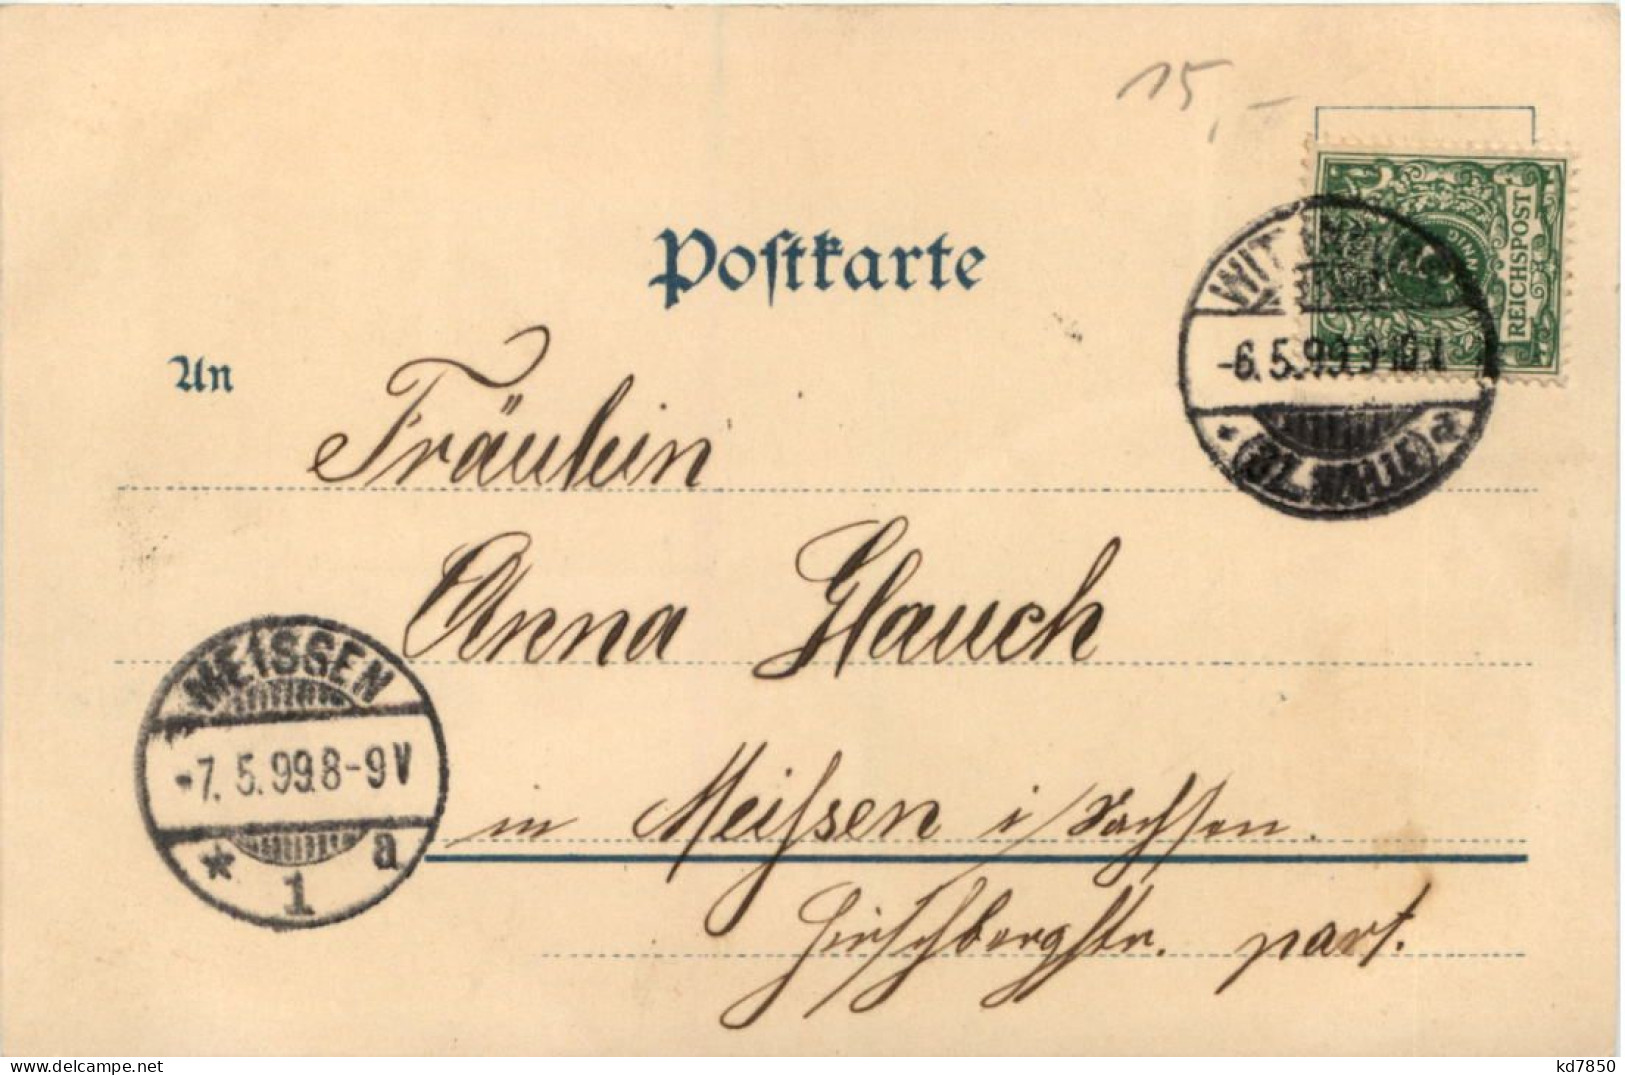 15,-
Postkarte
REICHSPOST
-6.5.99.9-10.
(BZ. HALLE) a
An
Fräulein
Anna Glauch
MEISSEN
-7.5.99.8-9V
1 a
in Meißen i/Sachsen.
Hirschbergstr. part.
kd7850